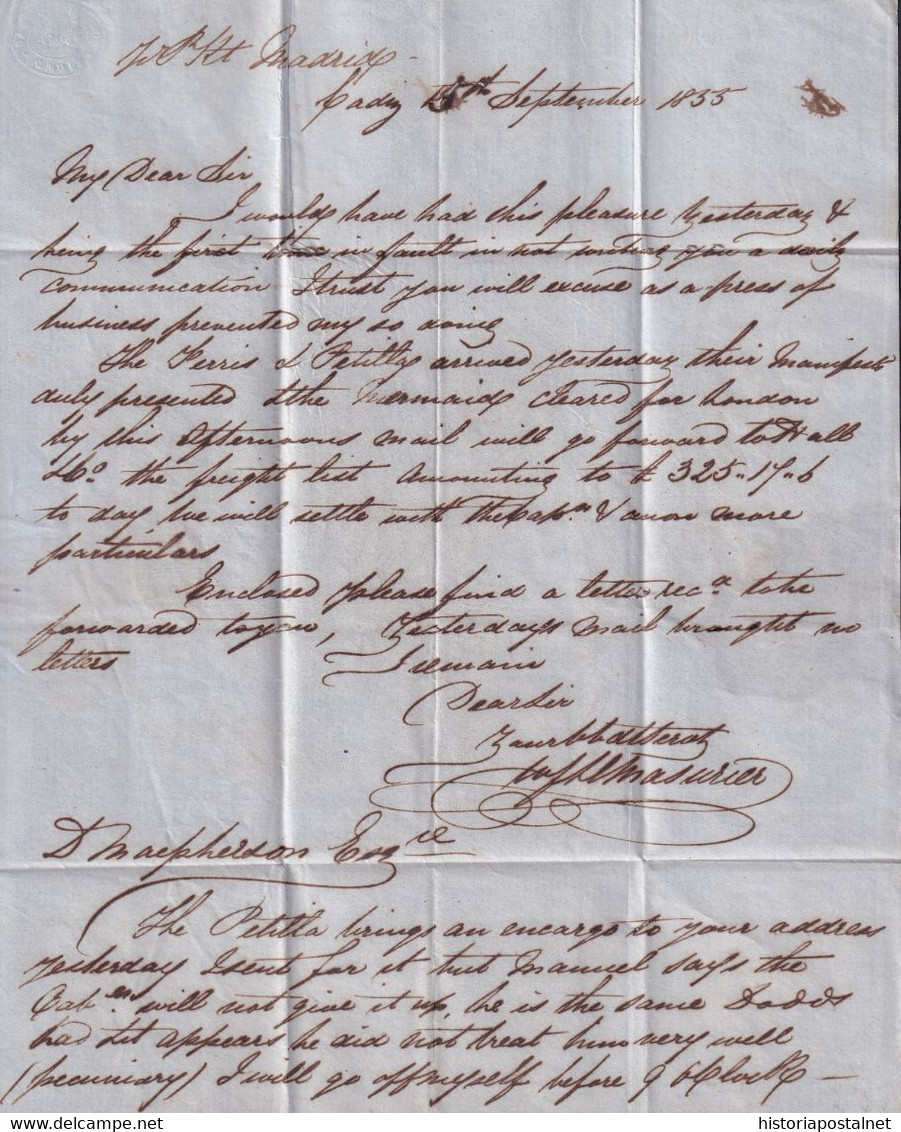 Madrid
Cadiz September 1855
My Dear Sir
I would have had this pleasure yesterday &
being the first time in fault in not writing you a daily
communication I trust you will excuse as a press of
business prevented my so doing
The Ferris & Petilla arrived yesterday their Manifests
duly presented & the Mermaid cleared for London
by this afternoons mail will go forward to Hall
& Co. the freight list amounting to £ 325.17.6
to day we will settle with the Capn. & anon more
particulars
Enclosed please find a letter recd. to be
forwarded to you, Yesterdays mail brought no
letters
I remain
Dear Sir
Your
D Macpherson Esqre
The Petilla brings an encargo to your address
yesterday I sent for it but Manuel says the
Capen. will not give it up, he is the same Dodds
had & it appears he did not treat him very well
(pecuniary) I will go off myself before 9 OClock —
historiapostalnet